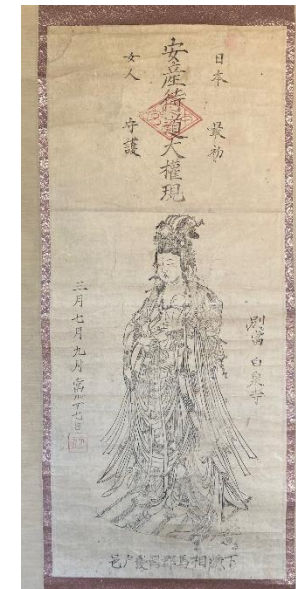 日本 最初
安産待道大權現
女人 守護
別當 白泉寺
三月七月九月會式十七日
下總相馬郡岡發戸邑